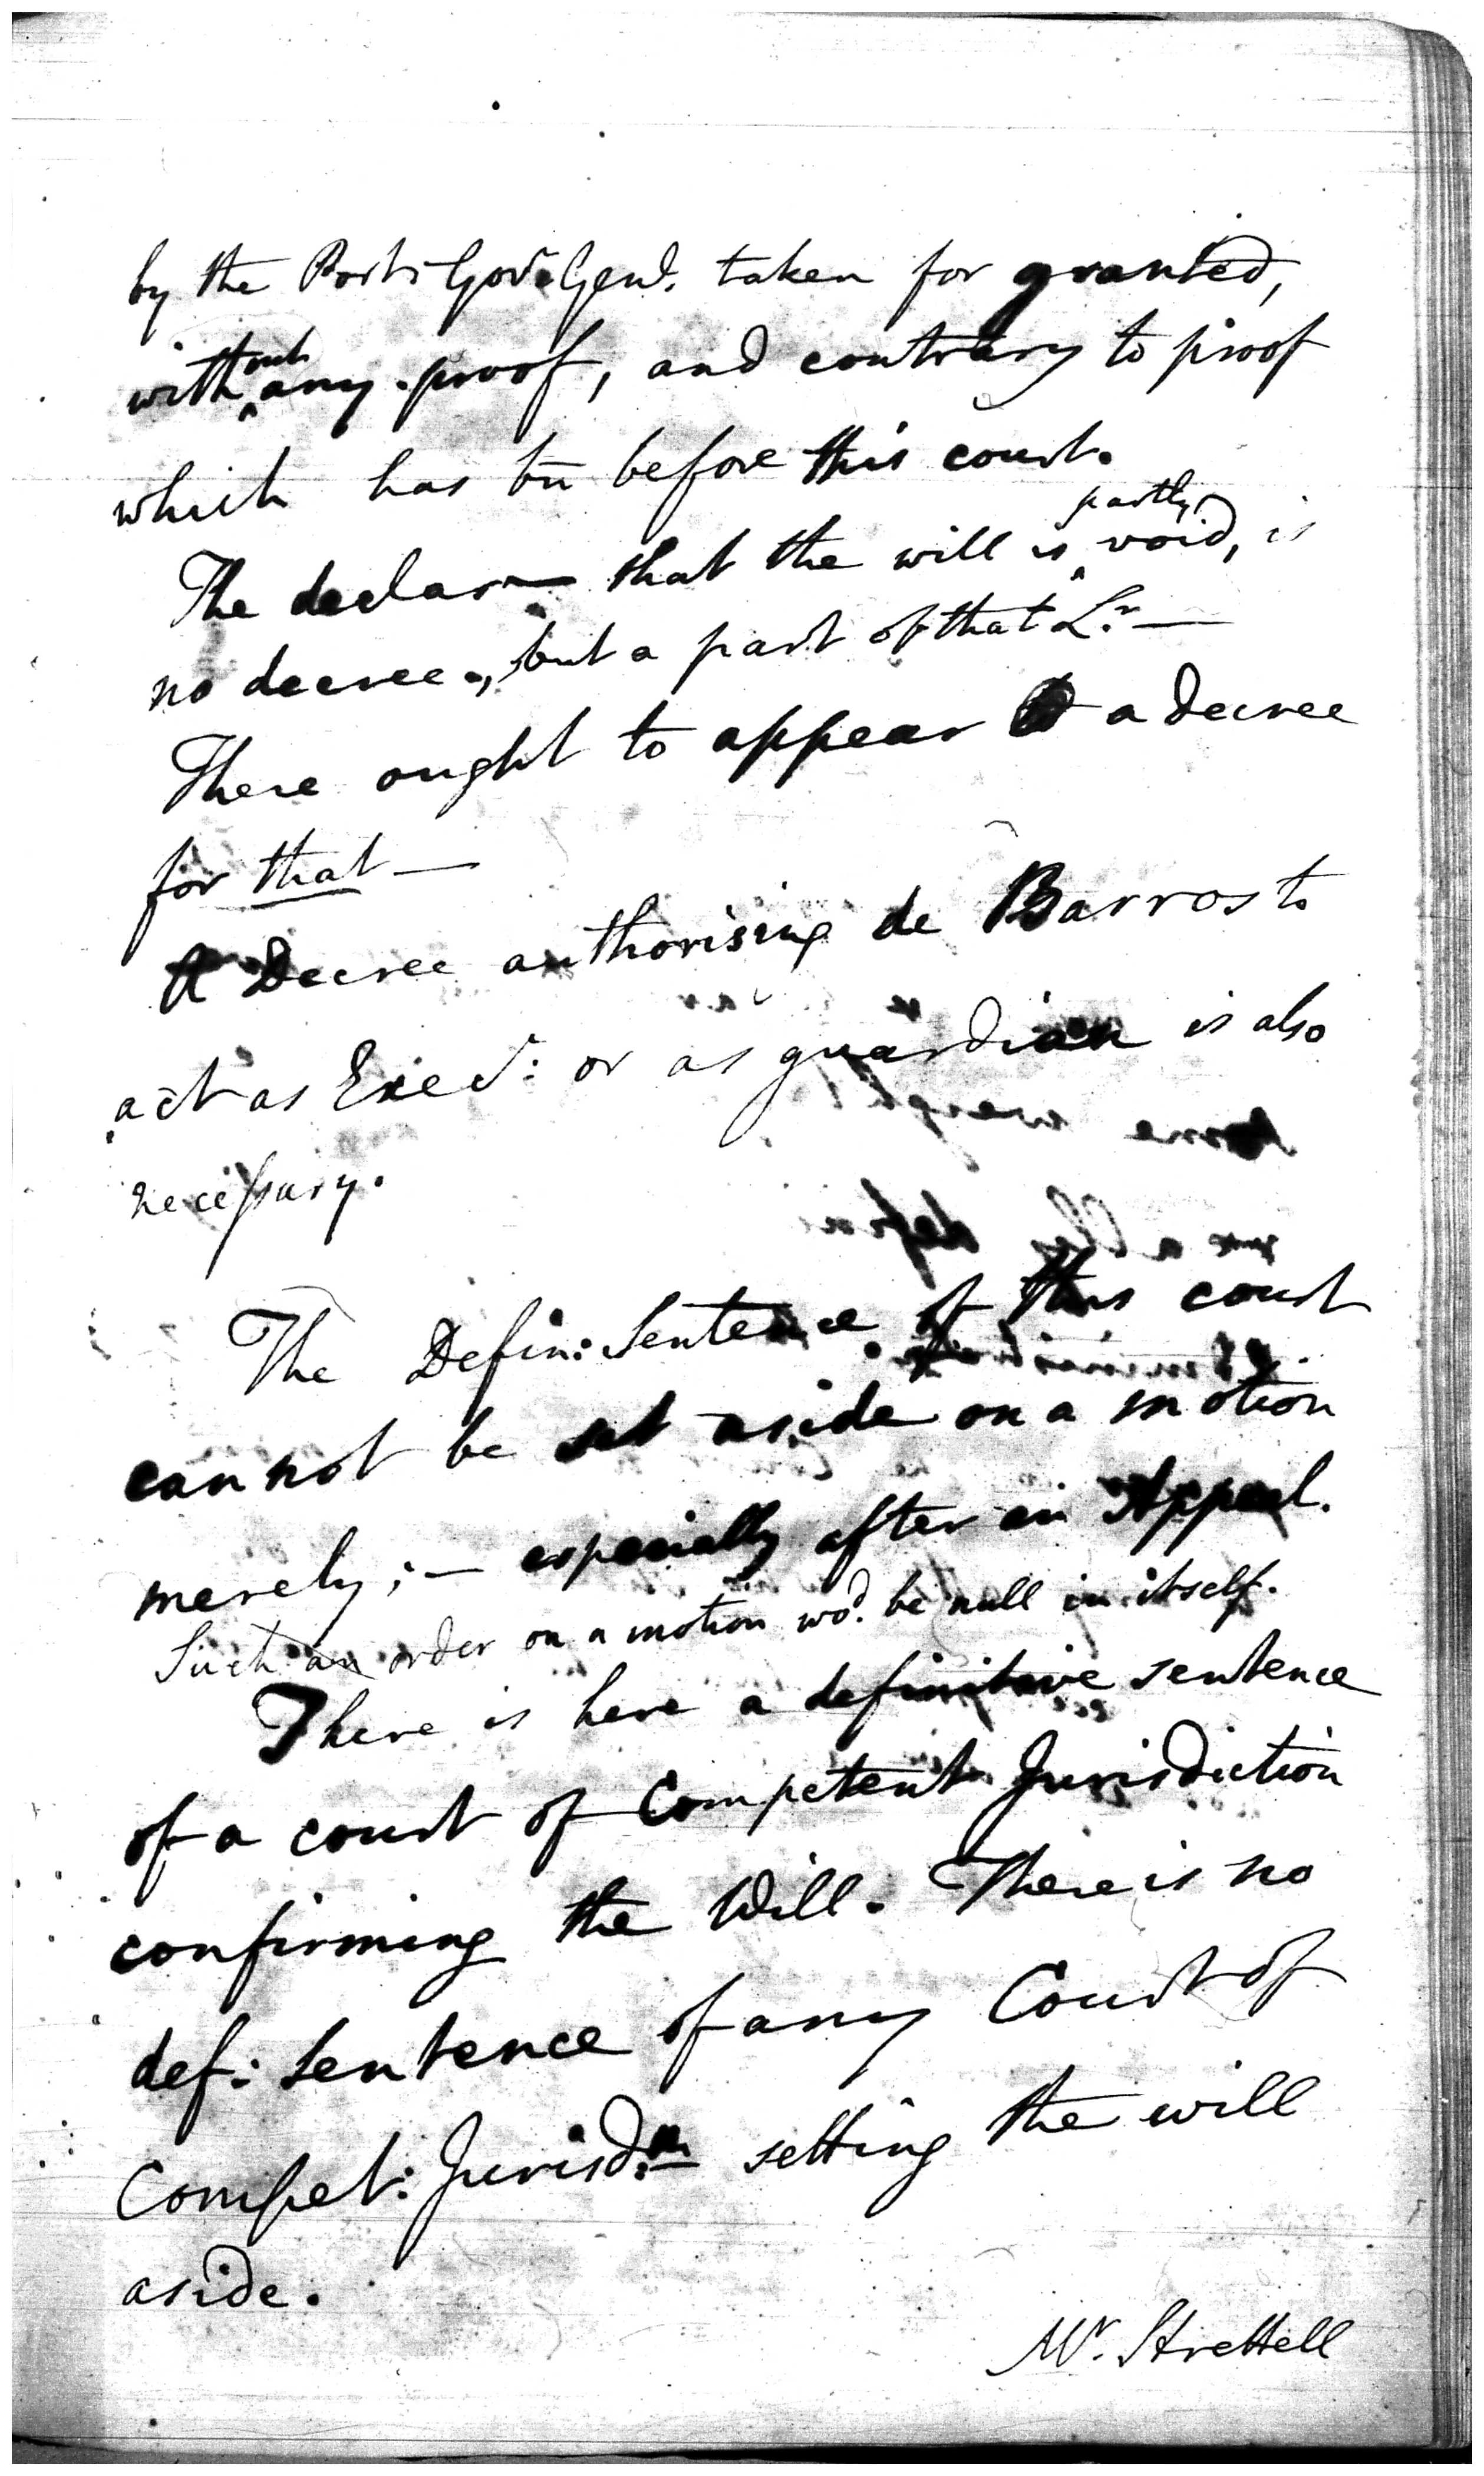 by the Port: Govr Genl. taken for granted,
without any proof, and contrary to proof
which has bn before this court.
The declarn that the will is partly void, is
no decree, but a part of that Lr. —
There ought to appear a decree
for that —
A Decree authorising de Barros to
act as Execr: or as guardian is also
necessary.
The Defin: Sentence of this court
cannot be set aside on a motion
merely; — especially after an Appeal.
Such an order on a motion wod. be null in itself.
There is here a definitive sentence
of a court of Competent Jurisdiction
confirming the Will. There is no
def: sentence of any Court of
Compet: Jurisd:n setting the will
aside.
Mr. Strettell